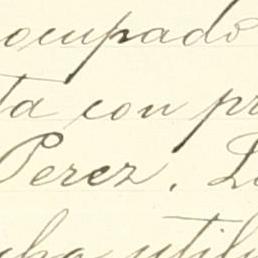 ocupado
ta con pr
Perez. L
cha utili